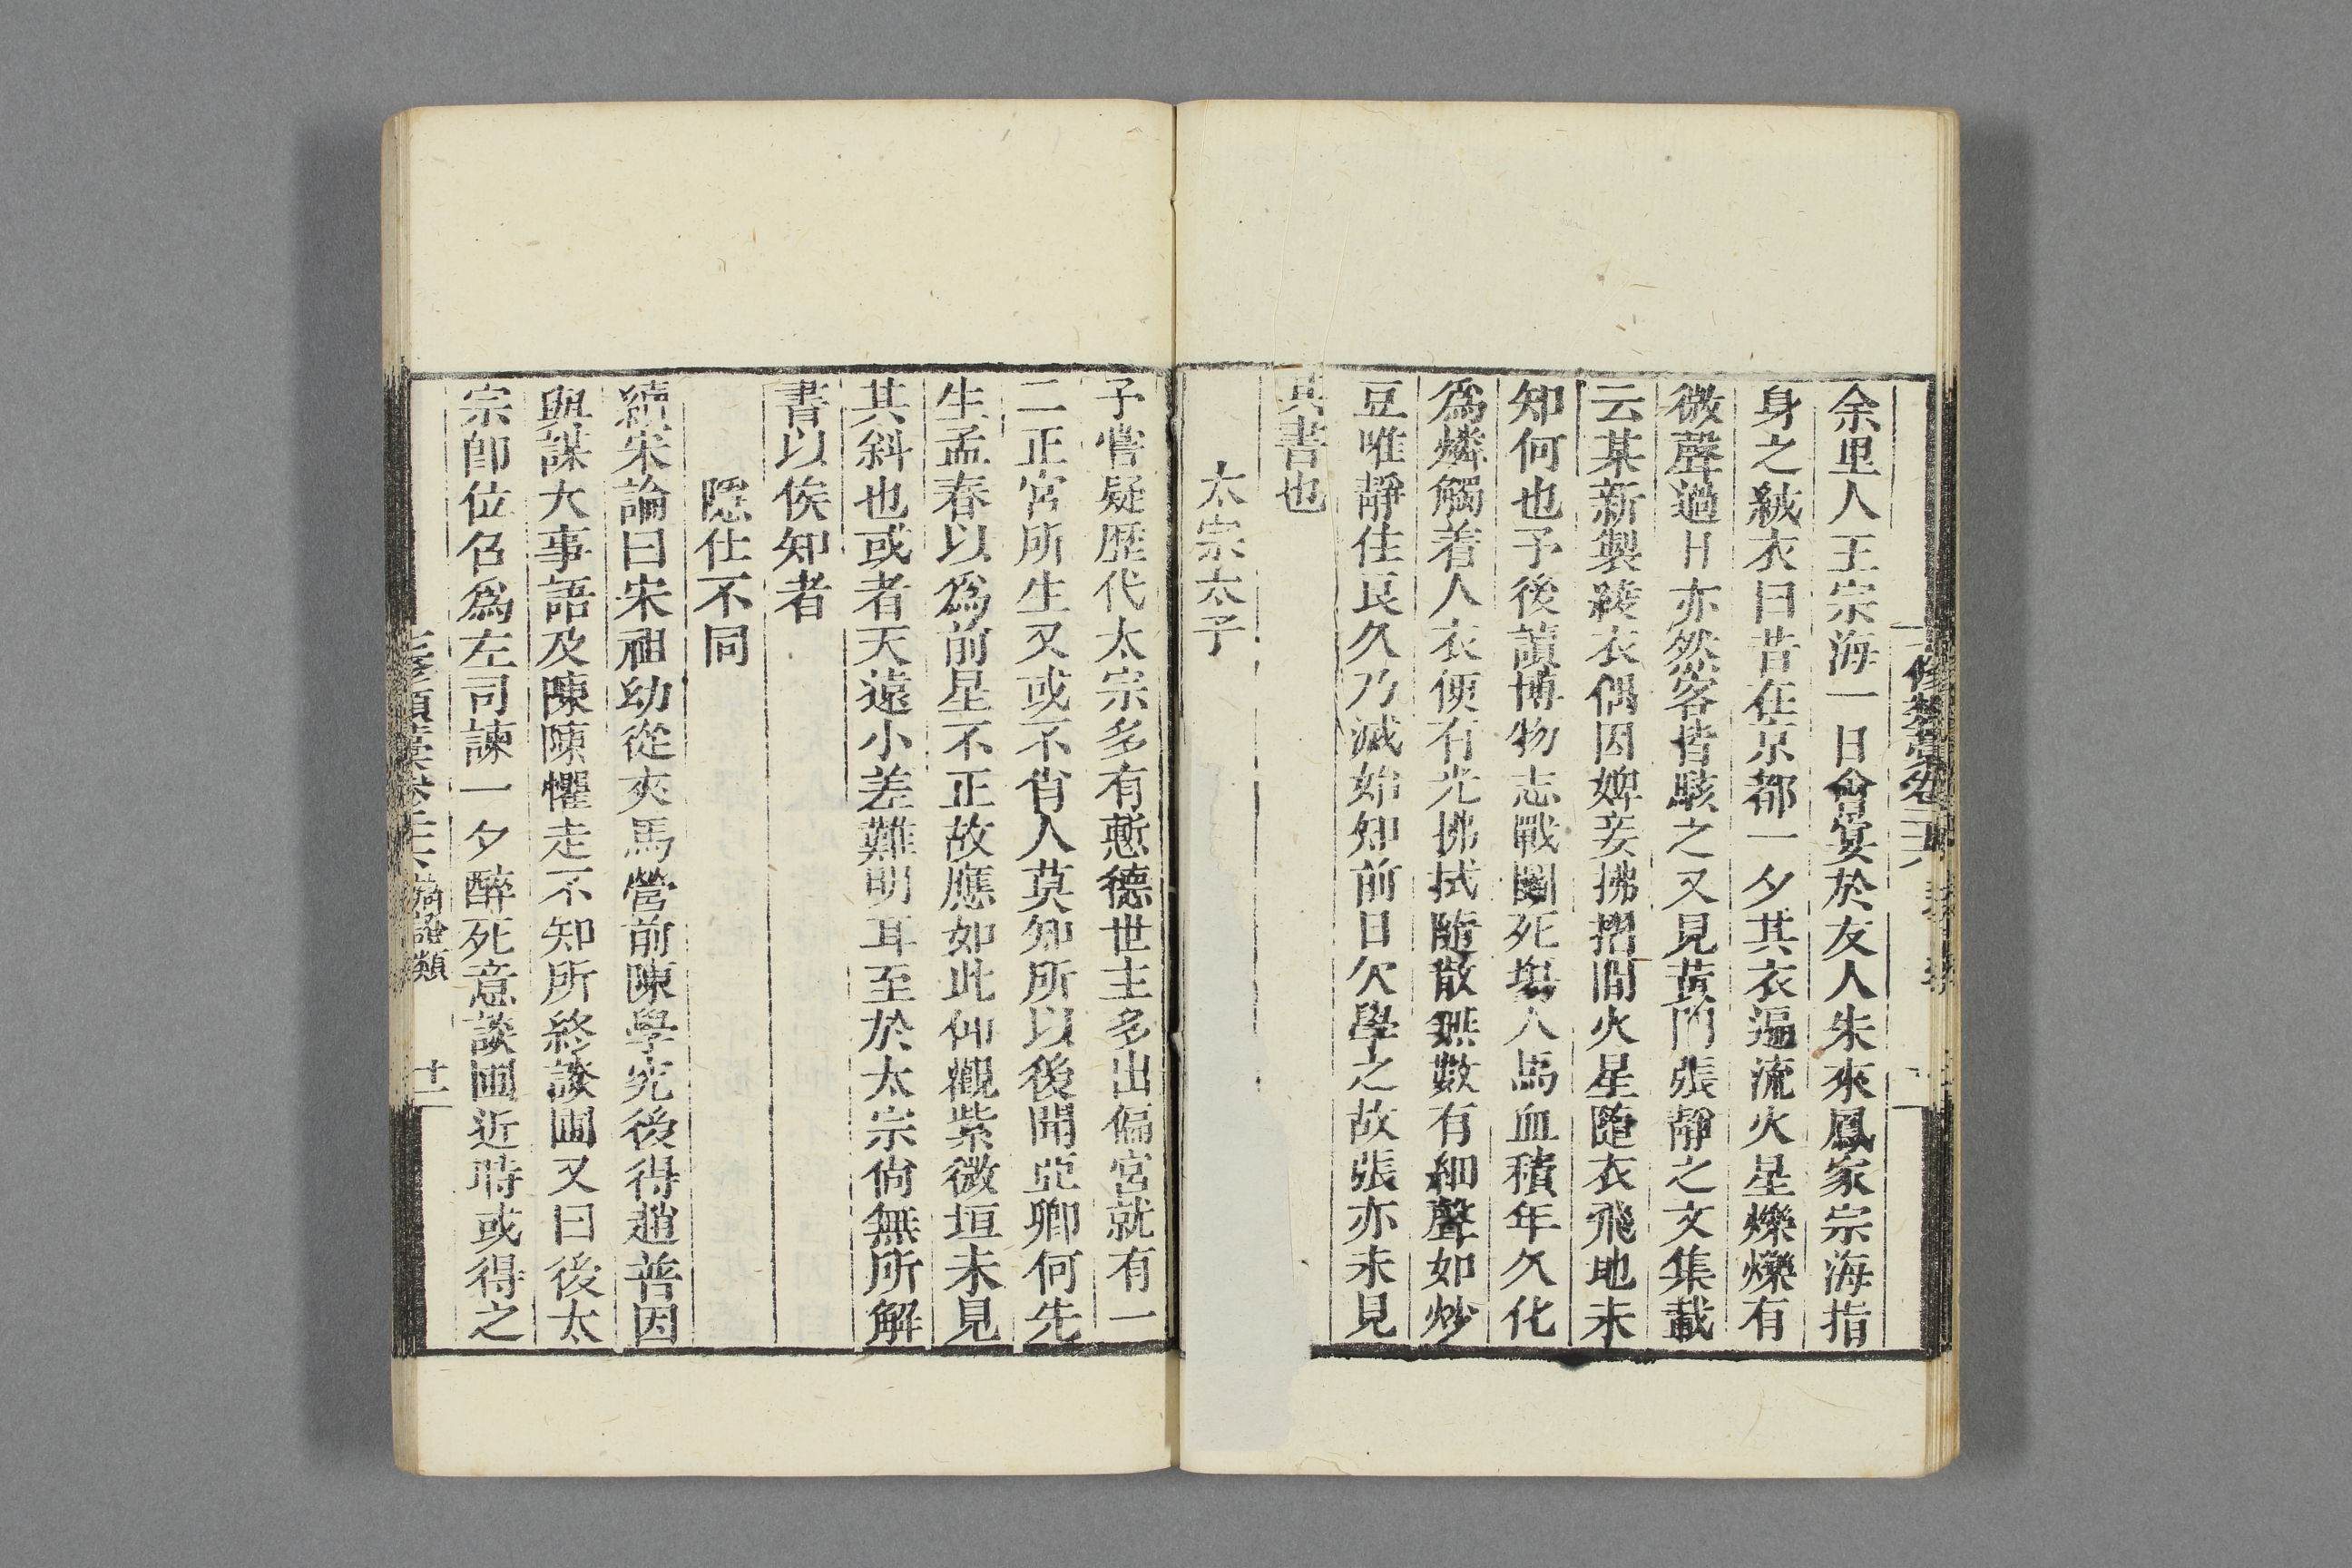 余里人王宗海一日會宴於友人朱來鳳家宗海指
身之絨衣曰昔在京都一夕其衣遍流火星爍爍有
微聲過日亦然客皆駭之又見黃門張靜之文集載
云某新製綾衣偶因婢妾拂摺間火星隨衣飛地未
知何也予後讀博物志戰鬭死塲人馬血積年久化
爲燐觸着人衣便有光拂拭隨散無數有細聲如炒
豆唯靜住良久乃滅始知前日欠學之故張亦未見
其書也
太宗太子
予嘗疑歷代太宗多有慙德世主多出偏宮就有一
二正宮所生又或不肖人莫知所以後閱亞卿何先
生孟春以爲前星不正故應如此仰觀紫微垣未見
其斜也或者天遠小差難明耳至於太宗尙無所解
書以俟知者
隱仕不同
續宋論曰宋祖幼從夾馬營前陳學究後得趙普因
與謀大事語及陳陳懼走不知所終談圃又曰後太
宗卽位召爲左司諫一夕醉死意談圃近時或得之
類